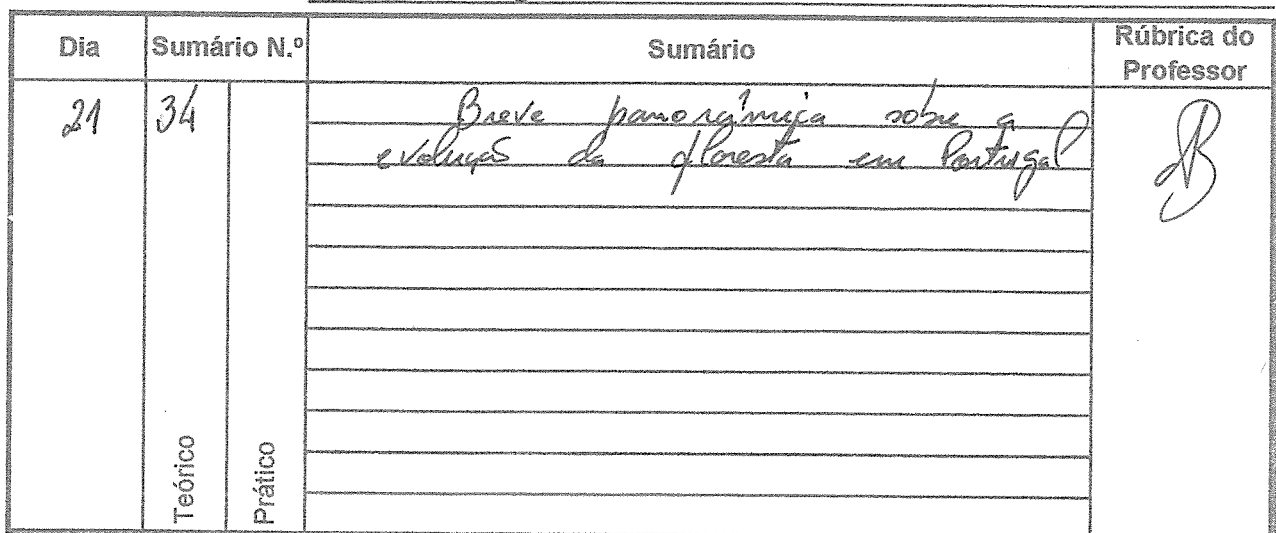 Dia Sumário N.º Sumário Rúbrica do
Professor
21 34 Breve panorâmica sobre a
evolução da floresta em Portugal
Teórico Prático